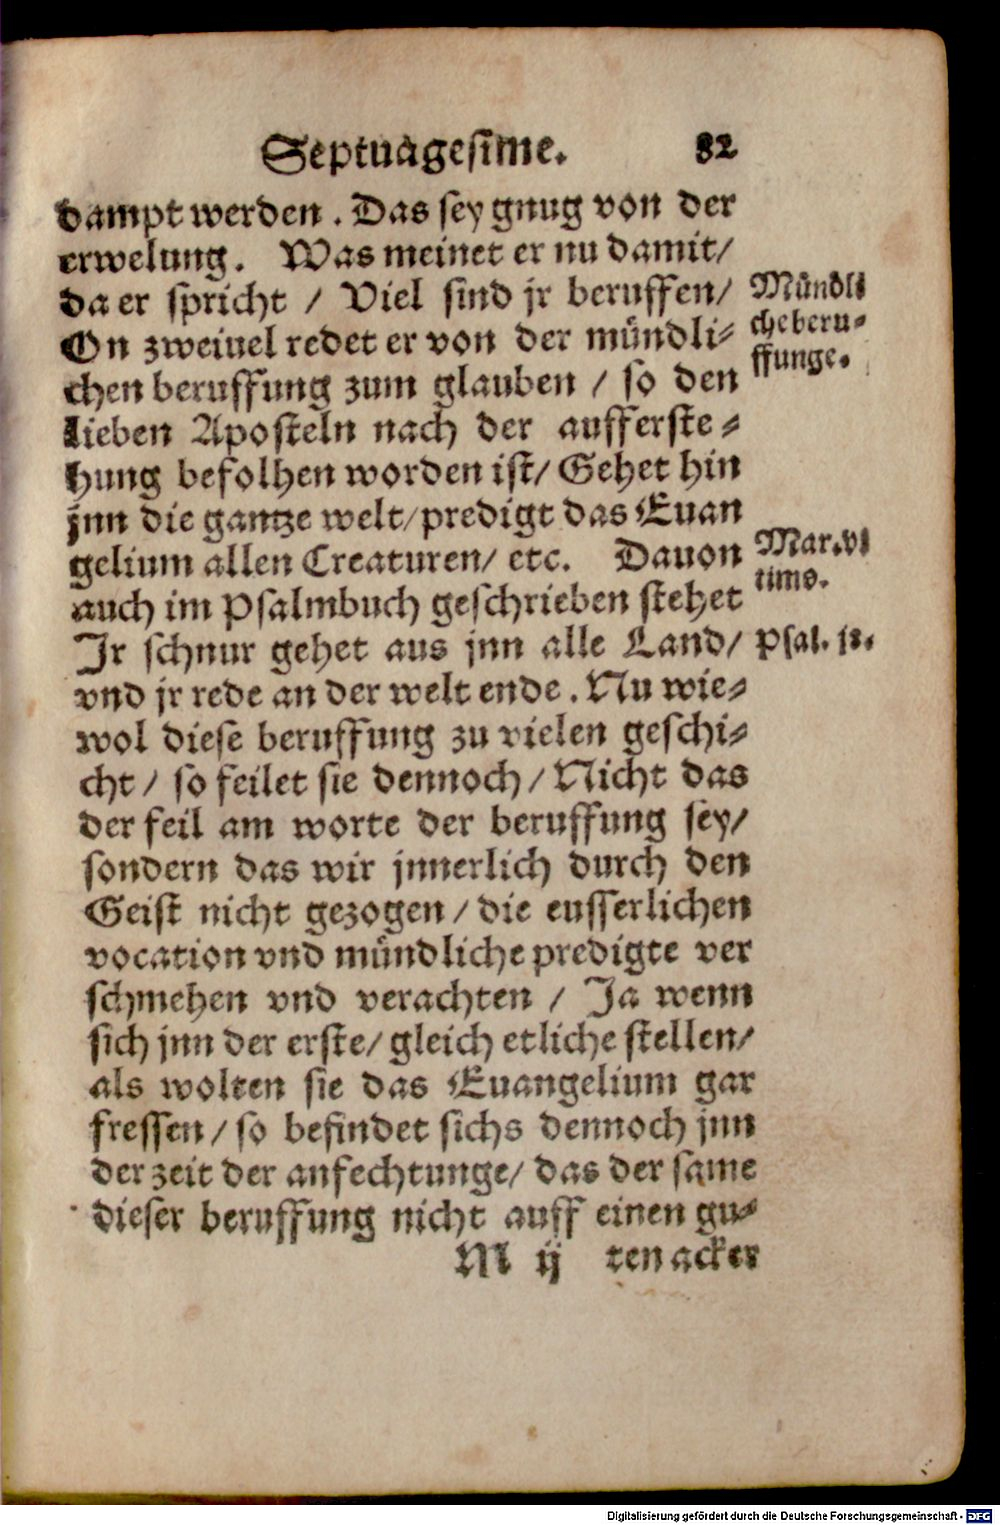 Septuagesime. 82
dampt werden. Das sey gnug von der
erwelung. Was meinet er nu damit/
da er spricht / Viel sind jr beruffen/
On zweiuel redet er von der mündli-
chen beruffung zum glauben / so den
lieben Aposteln nach der aufferste-
hung befolhen worden ist/ Gehet hin
jnn die gantze welt/ predigt das Euan
gelium allen Creaturen/ etc. Dauon
auch im Psalmbuch geschrieben stehet
Jr schnur gehet aus jnn alle Land/
vnd jr rede an der welt ende. Nu wie-
wol diese beruffung zu vielen geschi-
cht / so feilet sie dennoch / Nicht das
der feil am worte der beruffung sey/
sondern das wir jnnerlich durch den
Geist nicht gezogen / die eusserlichen
vocation vnd mündliche predigte ver
schmehen vnd verachten / Ja wenn
sich jnn der erste/ gleich etliche stellen/
als wolten sie das Euangelium gar
fressen/ so befindet sichs dennoch jnn
der zeit der anfechtunge/ das der same
dieser beruffung nicht auff einen gu-
M ij ten acker
Mündli
che beru-
ffunge.
Mar. vl
timo.
Psal.
Digitalisierung gefördert durch die Deutsche Forschungsgemeinschaft - DFG